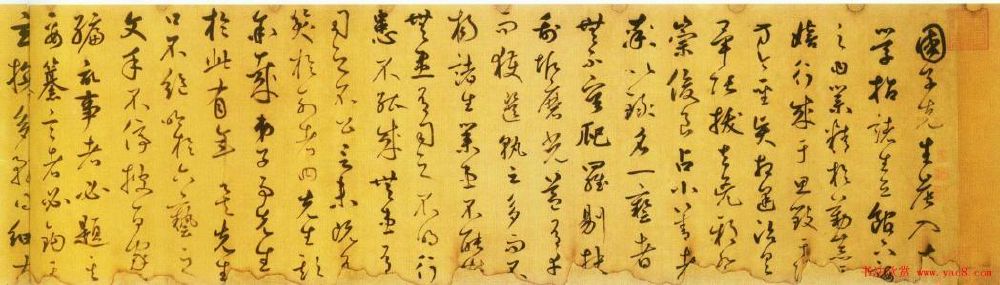 國子先生晨入大
學招諸生立館下誨
之曰業精於勤荒於
嬉行成于思毀于隨
方今聖賢相逢治具
畢張拔去兇邪登
崇俊良占小善者
率以錄名一藝者
無不容爬羅剔抉
刮垢磨光蓋有幸
而獲選孰云多而不
揚諸生業患不能精
無患有司之不明行
患不能成無患有
司之不公言未既有
笑於列者曰先生欺
余哉弟子事先生
於此有年矣先生
口不絕吟於六藝之
文手不停披百家之
編記事者必題其
要纂言者必鉤其
玄貪多務得細大
书法欣赏 www.yac8.com